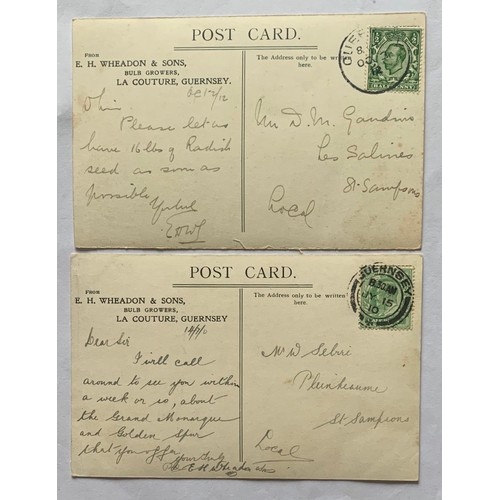 POST CARD.
FROM
E. H. WHEADON & SONS,
BULB GROWERS,
LA COUTURE, GUERNSEY.
The Address only to be written
here.
Please let us
have 16 lbs of Radish
seed as soon as
possibly
Mr D. M. Gaudion
Les Salines
St. Sampsons
Local
HALFPENNY
POST CARD.
FROM
E. H. WHEADON & SONS,
BULB GROWERS,
LA COUTURE, GUERNSEY
The Address only to be written
here.
Dear Sir
I will call
around to see you within
a week or so, about
the Grand Monarque
and Golden Spur
that you offer
yours truly
E H Wheadon
Mr W
St Sampsons
Local
GUERNSEY
8.30AM
JY 15
10